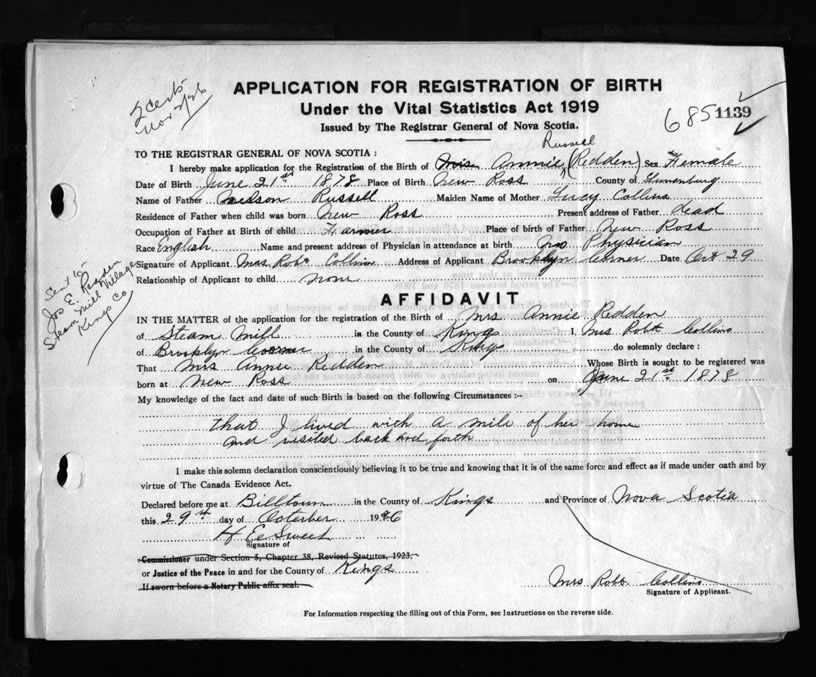 2 certs
Nov 2/26
APPLICATION FOR REGISTRATION OF BIRTH
Under the Vital Statistics Act 1919
Issued by The Registrar General of Nova Scotia.
685 1139
TO THE REGISTRAR GENERAL OF NOVA SCOTIA :
Russell
I hereby make application for the Registration of the Birth of Mrs Annie (Redden) Sex Female
Date of Birth June 21st 1878 Place of Birth New Ross County of Lunenburg
Name of Father Russell Maiden Name of Mother Lucy Collins
Residence of Father when child was born New Ross Present address of Father dead
Occupation of Father at Birth of child Farmer Place of birth of Father New Ross
Race English Name and present address of Physician in attendance at birth No Physician
Signature of Applicant Mrs Robt Collins Address of Applicant Brooklyn Corner Date Oct 29
Relationship of Applicant to child none
Sent to
Jos E. Redden
Steam Mill Village
Kings Co
AFFIDAVIT
IN THE MATTER of the application for the registration of the Birth of Mrs Annie Redden
of Steam Mill in the County of Kings I, Mrs Robt Collins
of Brooklyn Corner in the County of Kings do solemnly declare :
That Mrs Annie Redden Whose Birth is sought to be registered was
born at New Ross on June 21st 1878
My knowledge of the fact and date of such Birth is based on the following Circumstances :--
that I lived with a mile of her home
and visited back and forth
I make this solemn declaration conscientiously believing it to be true and knowing that it is of the same force and effect as if made under oath and by
virtue of The Canada Evidence Act.
Declared before me at Billtown in the County of Kings and Province of Nova Scotia
this 29th day of October 1926
Signature of
Commissioner under Section 5, Chapter 38, Revised Statutes, 1923.
or Justice of the Peace in and for the County of Kings
If sworn before a Notary Public affix seal.
Mrs Robt Collins
Signature of Applicant.
For Information respecting the filling out of this Form, see Instructions on the reverse side.